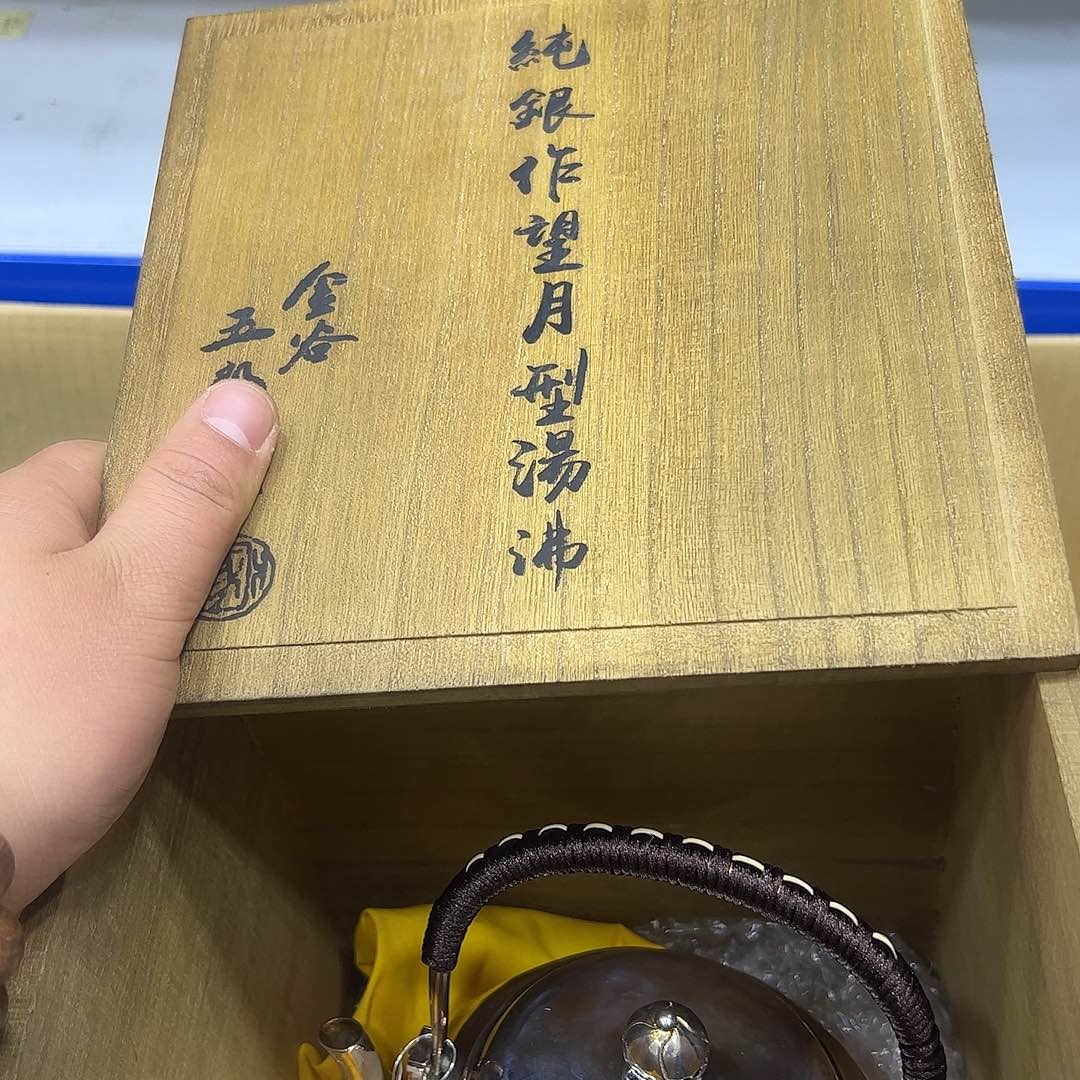 純銀作望月型湯沸
金谷
五